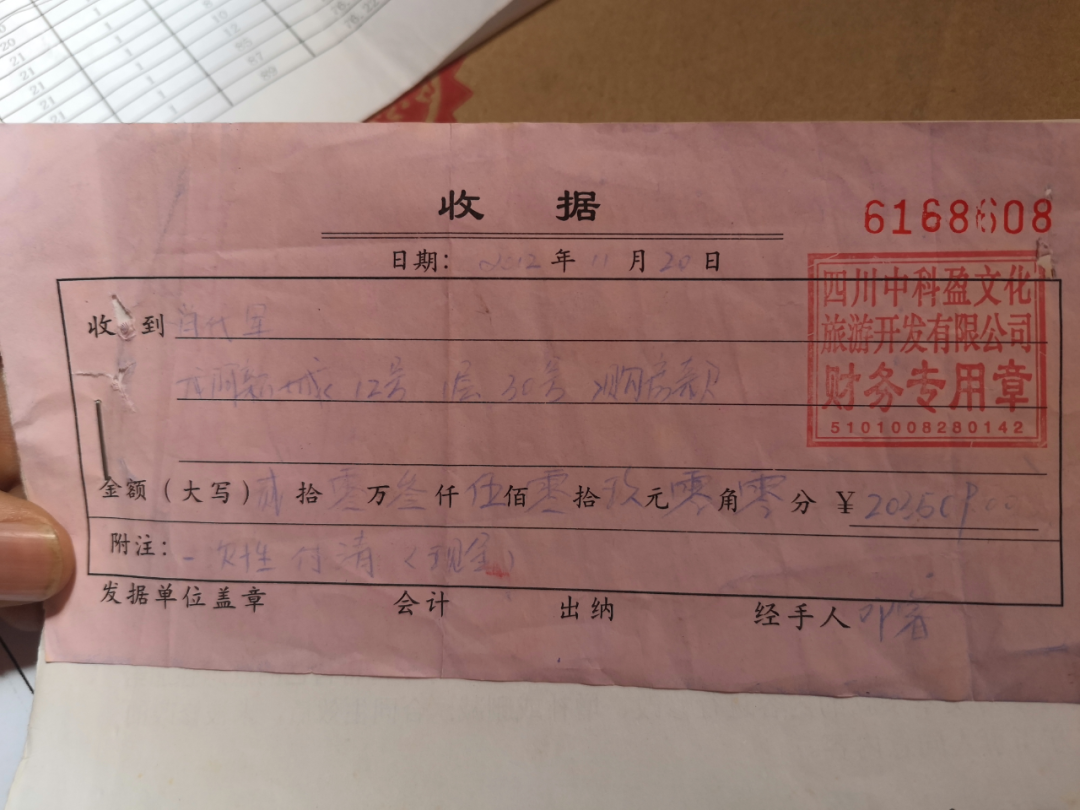 收 据
6168608
日期: 2012 年 11 月 20 日
四川中科盈文化
旅游开发有限公司
财务专用章
5101008280142
收 到
城 12号 1层 30号 购房款
金额(大写)贰 拾 零 万 叁 仟 伍 佰 零 拾 玖 元 零 角 零 分 ¥ 203509.00
附注: 一次性付清(现金)
发据单位盖章 会计 出纳 经手人